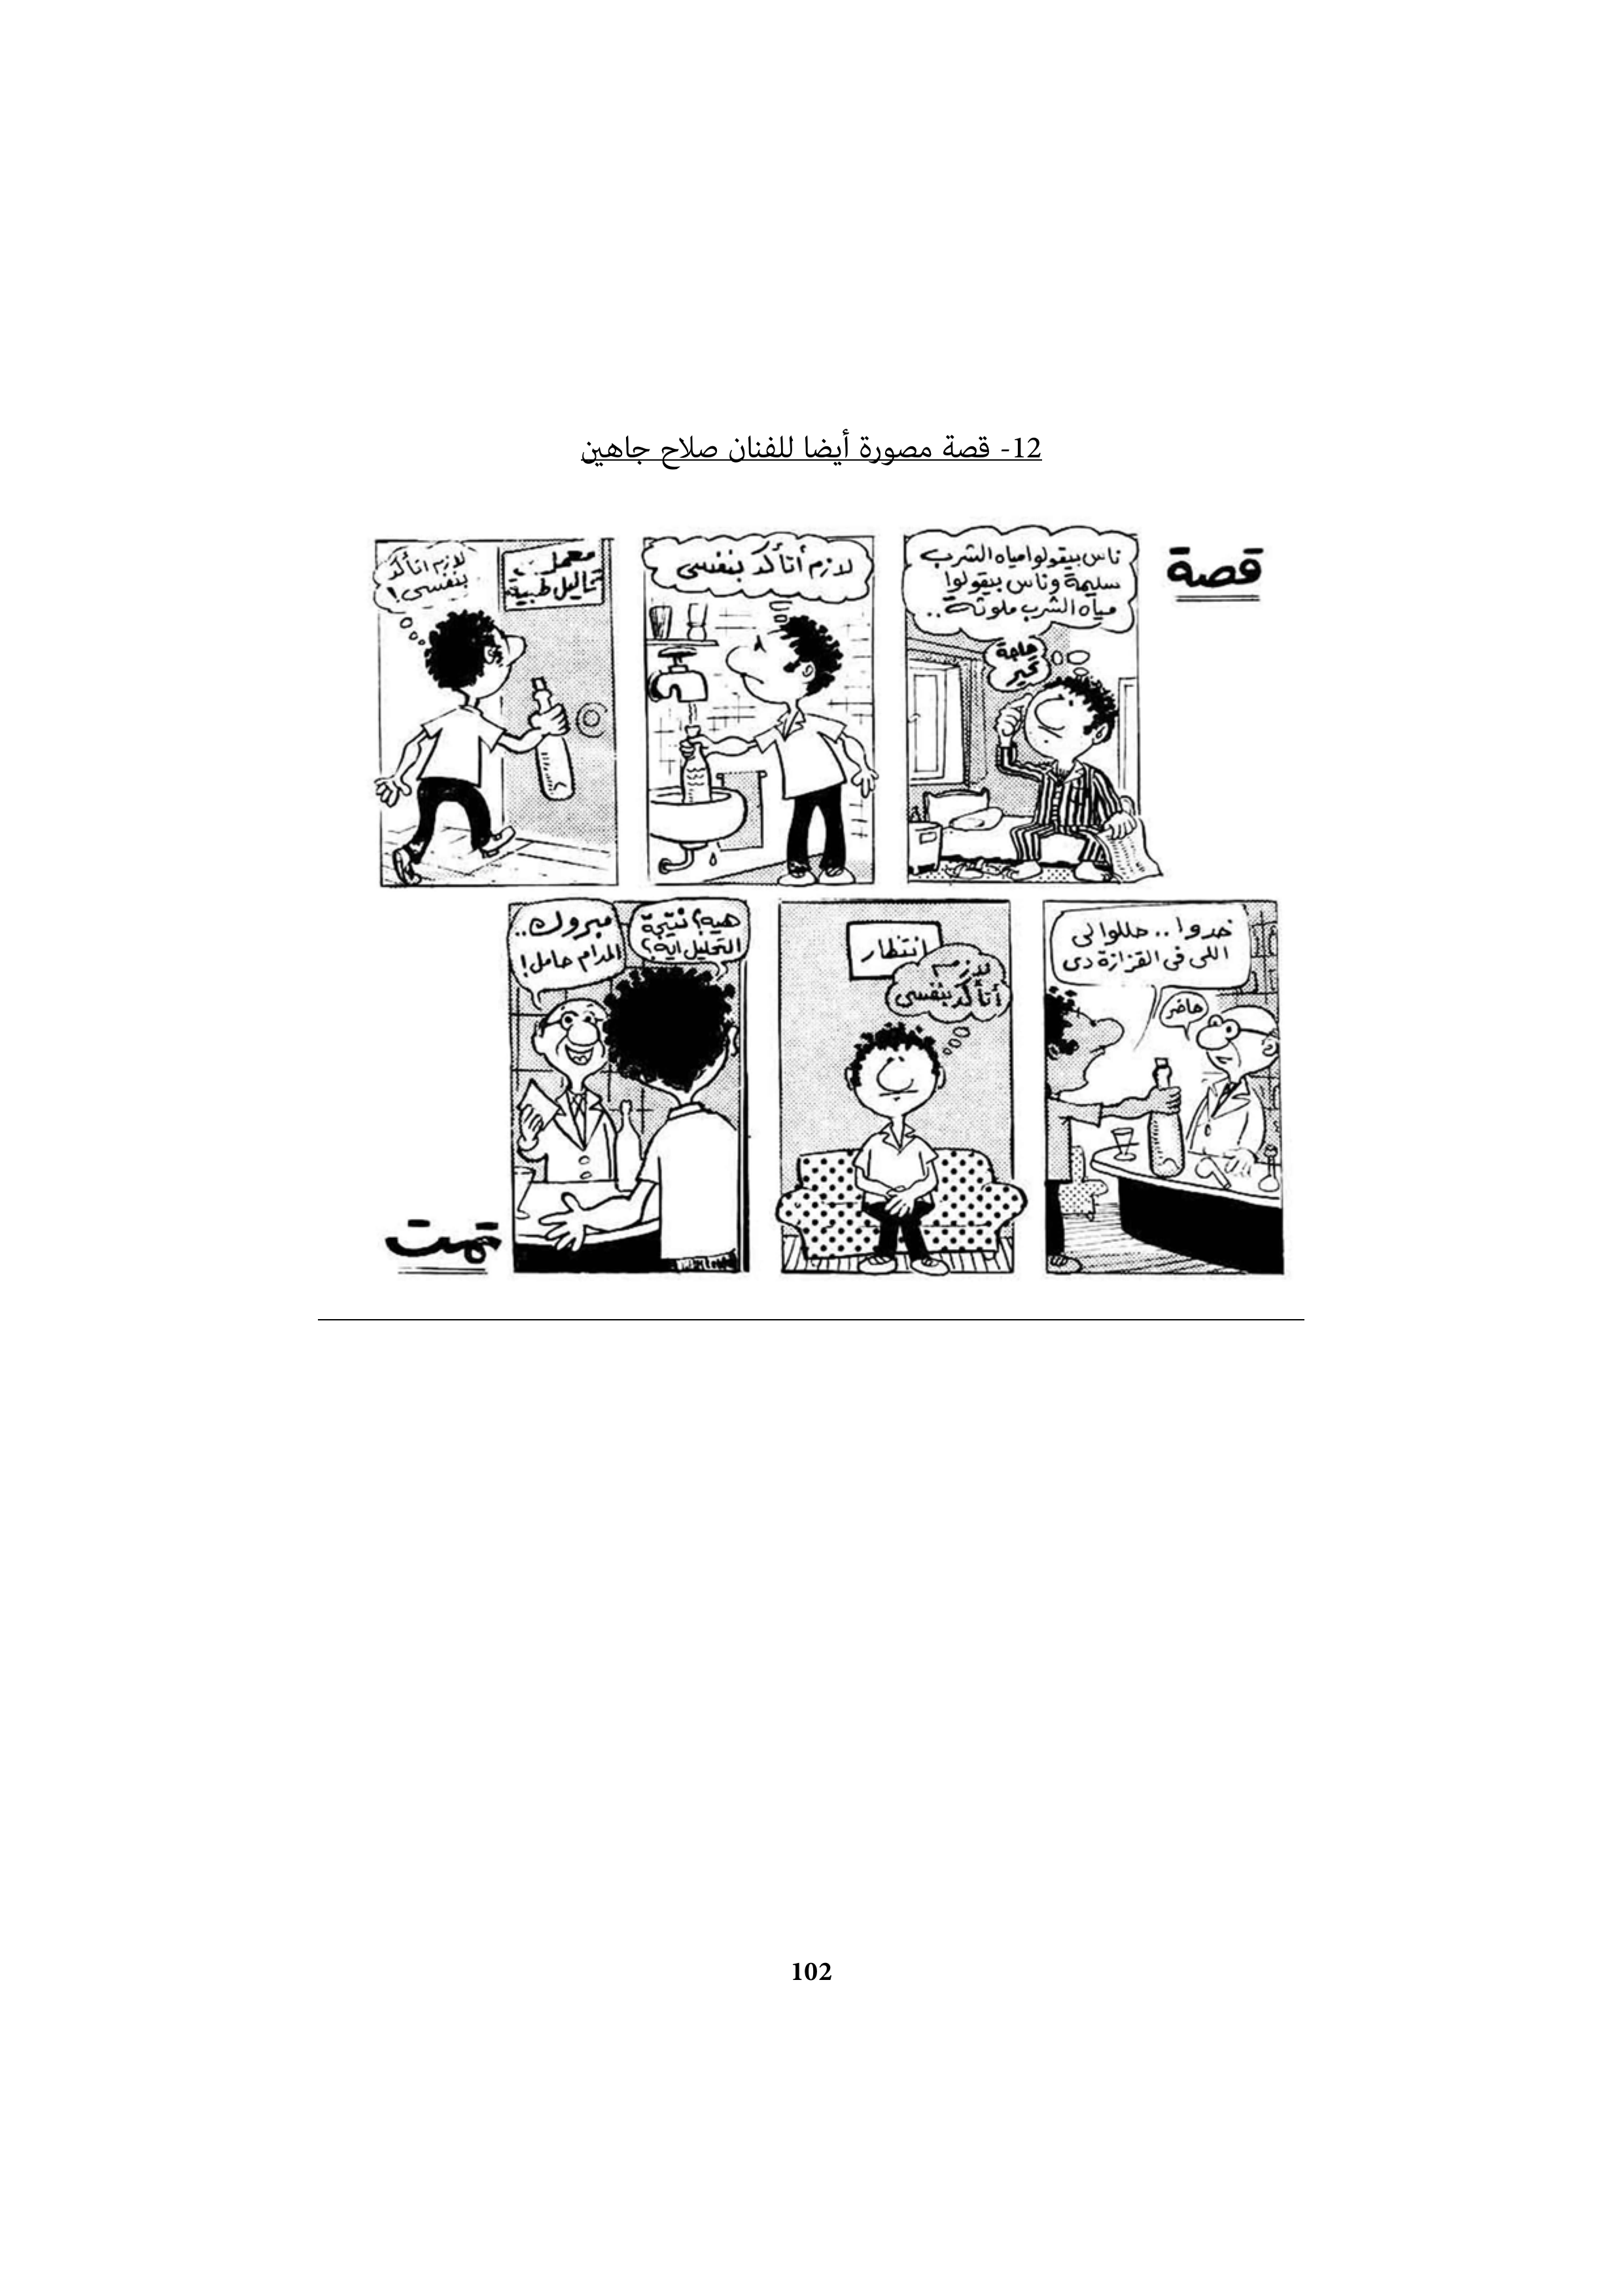 12- قصة مصورة أيضا للفنان صلاح جاهين
قصة
ناس بيقولوا مياه الشرب
سليمة وناس بيقولوا
مياه الشرب ملوثة..
حاجة
تحير
لازم أتأكد بنفسى
معمل
تحاليل طبية
لازم اتأكد
بنفسى!
خدوا.. حللوا لى
اللى فى القزازة دى
حاضر
انتظار
لازم
أتأكد بنفسى
هيه؟ نتيجة
التحليل ايه؟
مبروك..
المدام حامل!
تمت
102